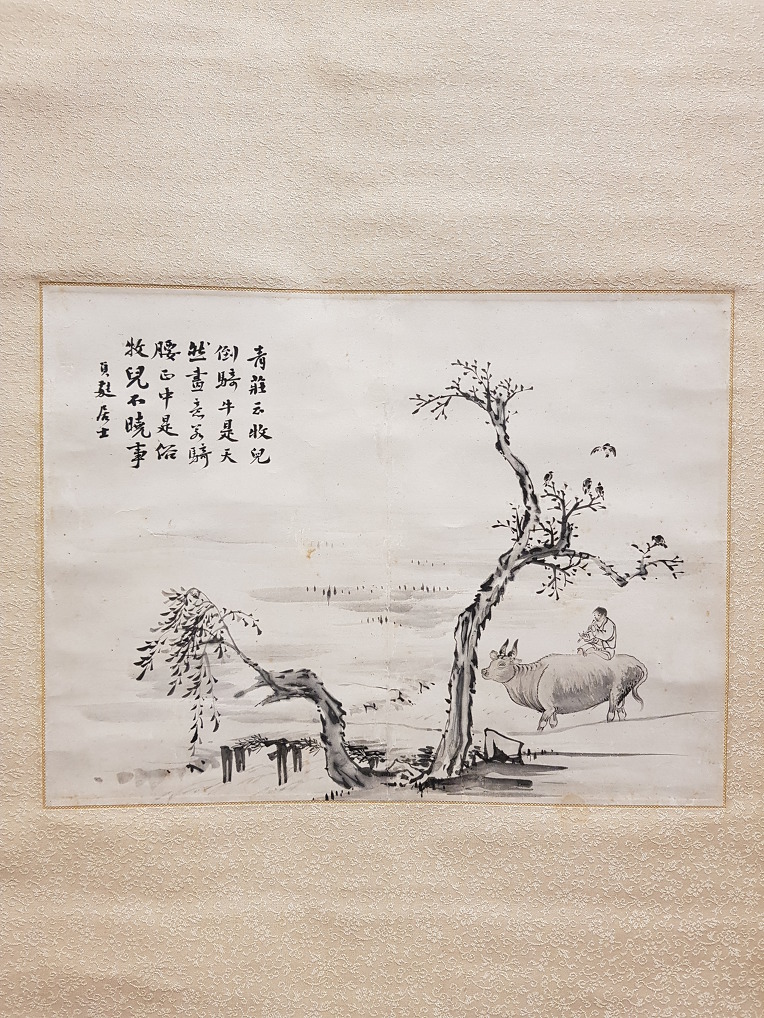 青莊云牧兒
倒騎牛是天
然畫意若騎
腰正中是俗
牧兒不曉事
居士